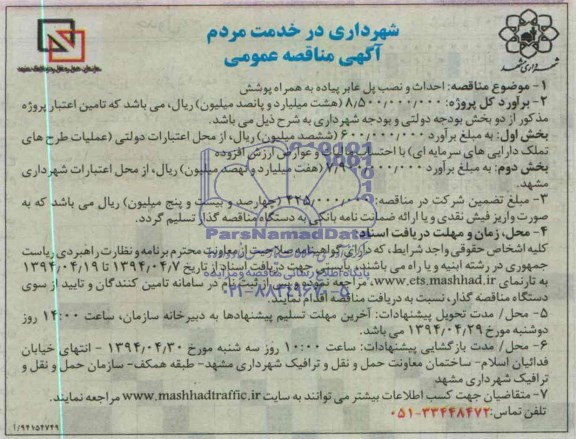 شهرداری در خدمت مردم
آگهی مناقصه عمومی
شهرداری مشهد
۱- موضوع مناقصه: احداث و نصب پل عابر پیاده به همراه پوشش
۲- برآورد کل پروژه: ۸٫۵۰۰٫۰۰۰٫۰۰۰ (هشت میلیارد و پانصد میلیون) ریال، می باشد که تامین اعتبار پروژه
مذکور از دو بخش بودجه دولتی و بودجه شهرداری به شرح ذیل می باشد.
بخش اول: به مبلغ برآورد ۶۰۰٫۰۰۰٫۰۰۰ (ششصد میلیون) ریال، از محل اعتبارات دولتی (عملیات طرح های
تملک دارایی های سرمایه ای) با احتساب مالیات و عوارض ارزش افزوده
بخش دوم: به مبلغ برآورد ۷٫۹۰۰٫۰۰۰٫۰۰۰ (هفت میلیارد و نهصد میلیون) ریال، از محل اعتبارات شهرداری
مشهد.
۳- مبلغ تضمین شرکت در مناقصه: ۴۲۵٫۰۰۰٫۰۰۰ (چهارصد و بیست و پنج میلیون) ریال می باشد که به
صورت واریز فیش نقدی و یا ارائه ضمانت نامه بانکی به دستگاه مناقصه گذار تسلیم گردد.
ParsNamadData
۴- محل، زمان و مهلت دریافت اسناد:
کلیه اشخاص حقوقی واجد شرایط، که دارای گواهینامه صلاحیت از معاونت محترم برنامه و نظارت راهبردی ریاست
جمهوری در رشته ابنیه و یا راه می باشند، بایستی جهت دریافت اسناد از تاریخ ۱۳۹۴/۰۴/۷ تا ۱۳۹۴/۰۴/۱۹
به تارنمای www.ets.mashhad.ir، مراجعه نموده و پس از ثبت نام در سامانه تامین کنندگان و تایید از سوی
دستگاه مناقصه گذار، نسبت به دریافت مناقصه اقدام نمایند.
پایگاه اطلاع رسانی مناقصه و مزایده
۰۲۱-۸۸۳۴۹۶۷۰-۵
۵- محل/ مدت تحویل پیشنهادات: آخرین مهلت تسلیم پیشنهادها به دبیرخانه سازمان، ساعت ۱۴:۰۰ روز
دوشنبه مورخ ۱۳۹۴/۰۴/۲۹ می باشد.
۶- محل/ مدت بازگشایی پیشنهادات: ساعت ۱۰:۰۰ روز سه شنبه مورخ ۱۳۹۴/۰۴/۳۰ - انتهای خیابان
فدائیان اسلام- ساختمان معاونت حمل و نقل و ترافیک شهرداری مشهد- طبقه همکف- سازمان حمل و نقل و
ترافیک شهرداری مشهد
۷- متقاضیان جهت کسب اطلاعات بیشتر می توانند به سایت www.mashhadtraffic.ir مراجعه نمایند.
تلفن تماس: ۰۵۱-۳۳۴۴۸۴۷۲
۹۴۱۵۲۷۴۹/آ